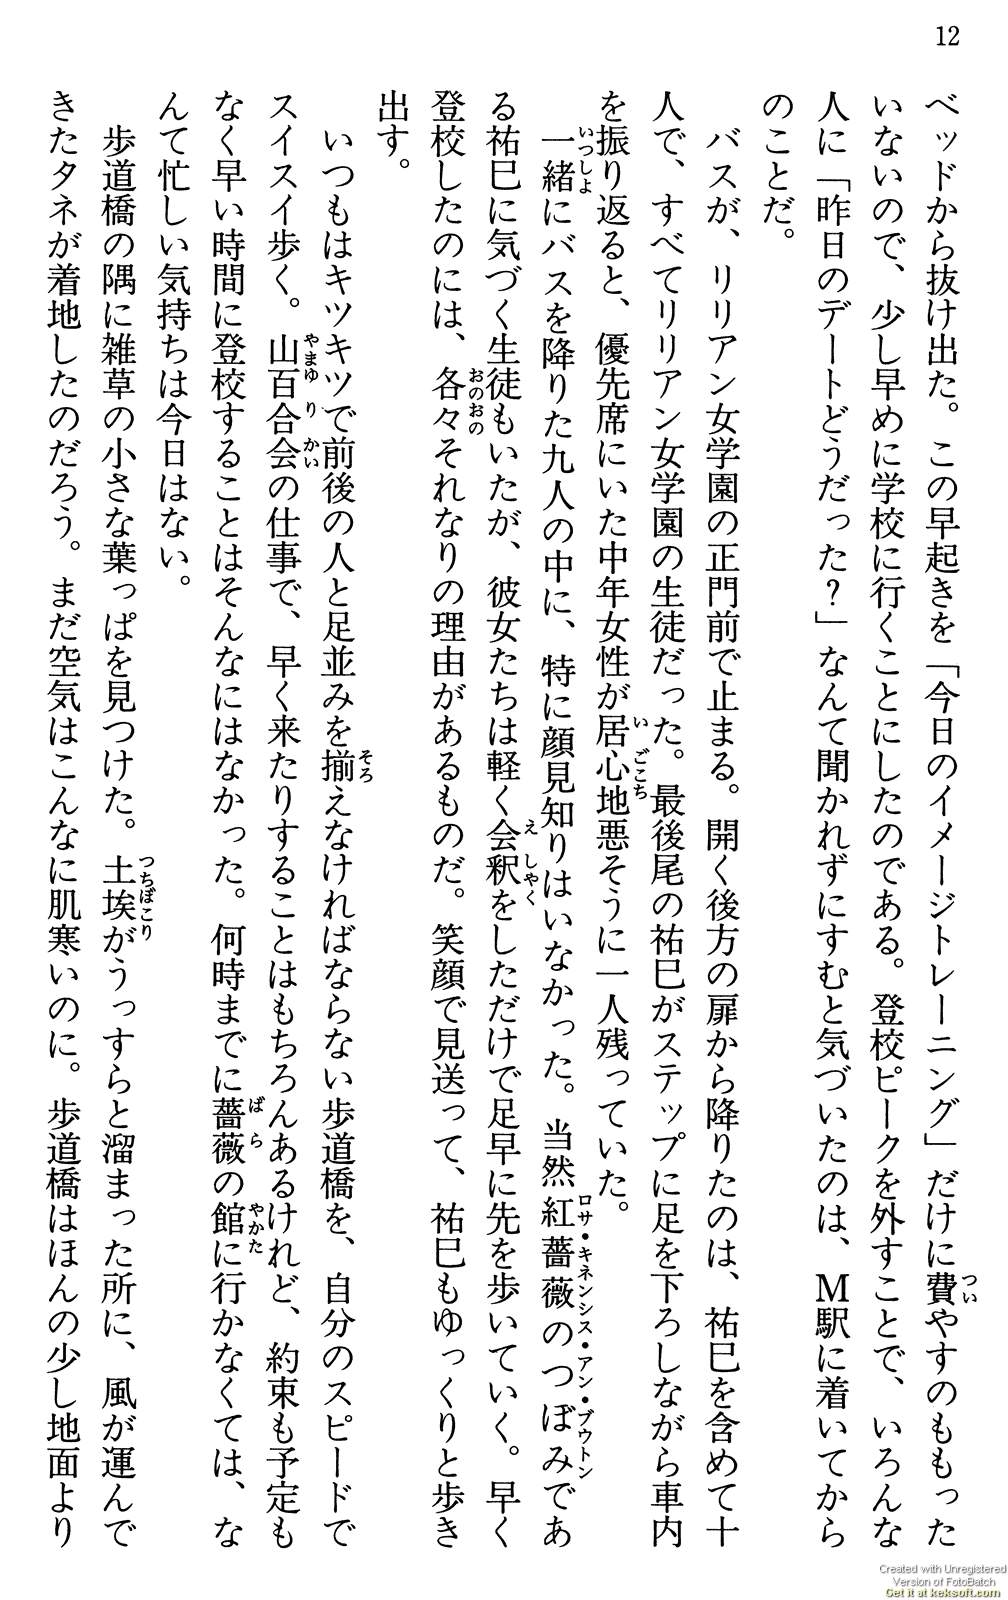 12
ベッドから抜け出た。この早起きを「今日のイメージトレーニング」だけに費やすのももった
いないので、少し早めに学校に行くことにしたのである。登校ピークを外すことで、いろんな
人に「昨日のデートどうだった?」なんて聞かれずにすむと気づいたのは、M駅に着いてから
のことだ。
バスが、リリアン女学園の正門前で止まる。開く後方の扉から降りたのは、祐巳を含めて十
人で、すべてリリアン女学園の生徒だった。最後尾の祐巳がステップに足を下ろしながら車内
を振り返ると、優先席にいた中年女性が居心地悪そうに一人残っていた。
一緒にバスを降りた九人の中に、特に顔見知りはいなかった。当然紅薔薇のつぼみであ
る祐巳に気づく生徒もいたが、彼女たちは軽く会釈をしただけで足早に先を歩いていく。早く
登校したのには、各々それなりの理由があるものだ。笑顔で見送って、祐巳もゆっくりと歩き
出す。
いつもはキツキツで前後の人と足並みを揃えなければならない歩道橋を、自分のスピードで
スイスイ歩く。山百合会の仕事で、早く来たりすることはもちろんあるけれど、約束も予定も
なく早い時間に登校することはそんなにはなかった。何時までに薔薇の館に行かなくては、な
んて忙しい気持ちは今日はない。
歩道橋の隅に雑草の小さな葉っぱを見つけた。土埃がうっすらと溜まった所に、風が運んで
きたタネが着地したのだろう。まだ空気はこんなに肌寒いのに。歩道橋はほんの少し地面より
Created with Unregistered
Version of FotoBatch
Get it at keksoft.com